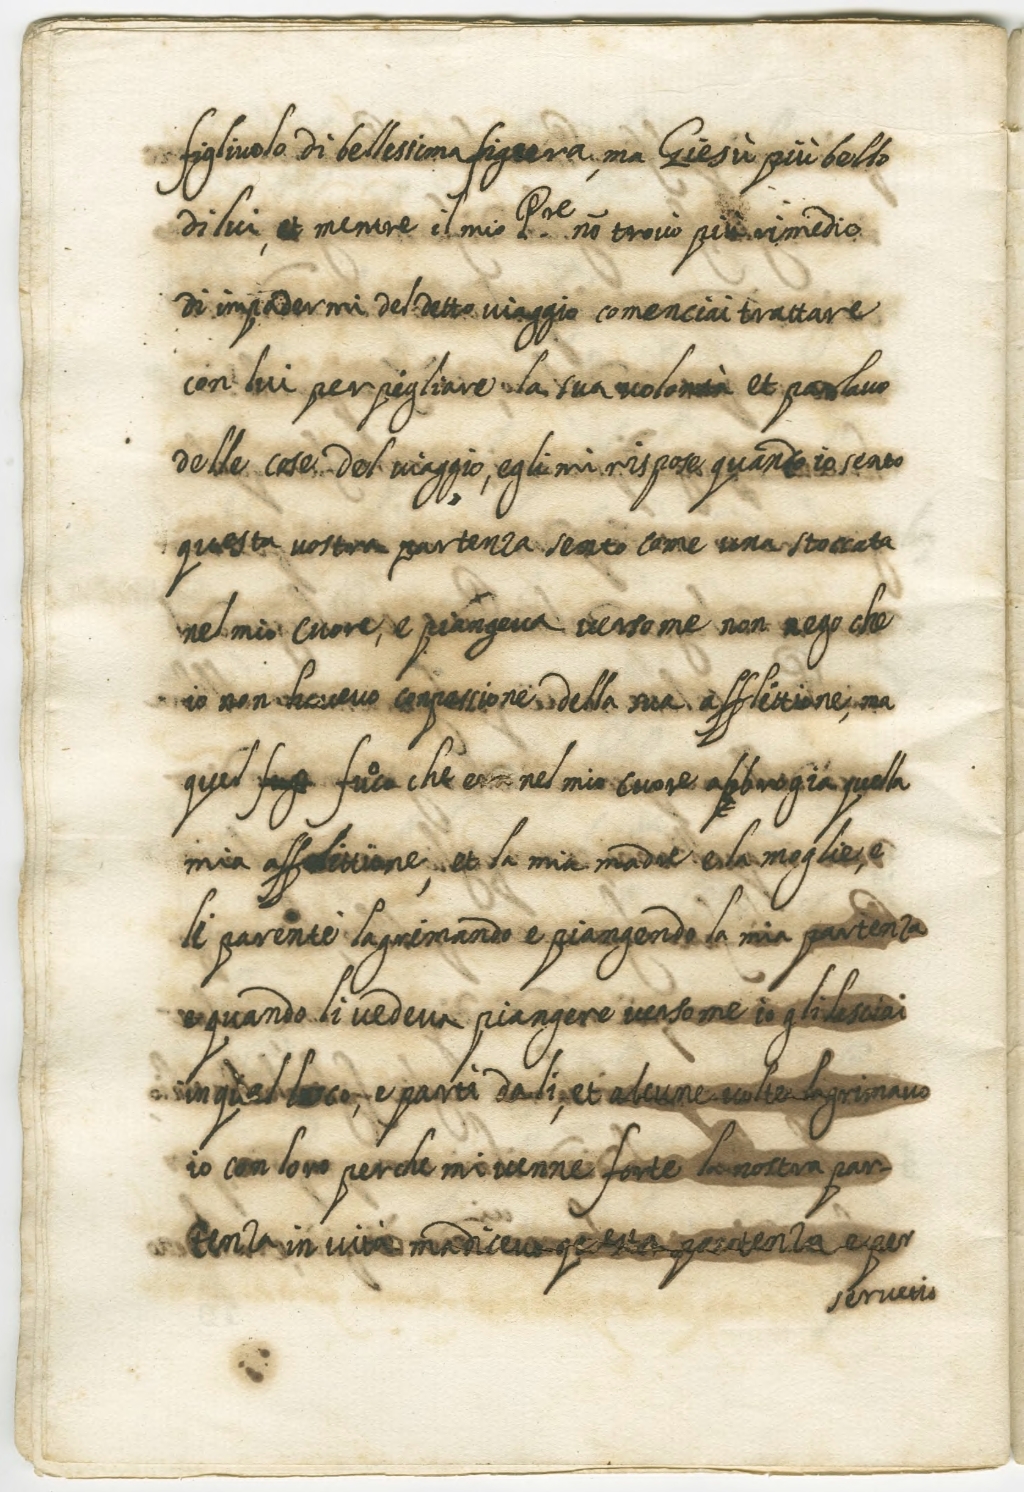 figliuolo di bellessima figura, ma Giesù più bello
di lui, et mentre il mio P.re nō trovò più rimedio
di impadermi del detto viaggio comenciai trattare
con lui per pigliare la sua volontà et parlavo
delle cose del viaggio, egli mi rispose quando io sento
questa vostra partenza sento come una stoccata
nel mio cuore, e piangeva verso me non nego che
io non havevo conpassione della sua afflittione, ma
quel fuoco che era nel mio cuore abbrogia quella
mia afflittione, et la mia madre e la moglie, e
li parenti lagrimando e piangendo la mia partenza
e quando li vedeva piangere verso me io gli lesciai
in quel loco, e parti da li, et alcune volte lagrimavo
io con loro perche mi venne forte la nostra par-
tenza in vità ma dicevo questa partenza e per
servitio